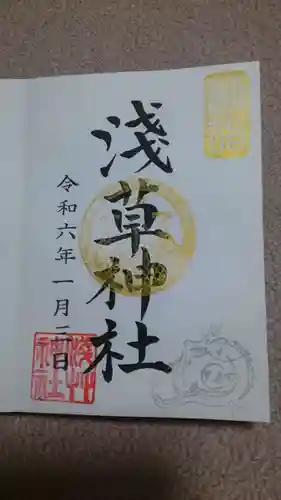 淺草神社
令和六年一月二日